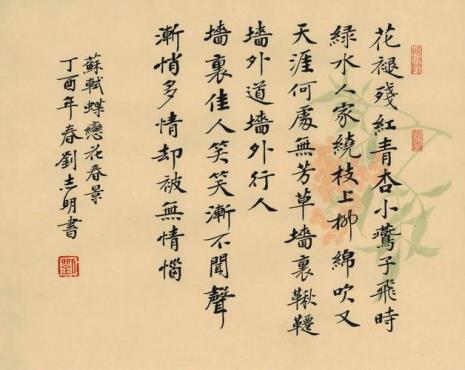 花褪殘紅青杏小鷰子飛時
綠水人家繞枝上柳綿吹又
天涯何處無芳草墻裏鞦韆
墻外道墻外行人
墻裏佳人笑笑漸不聞聲
漸悄多情却被無情惱
蘇軾蝶戀花春景
丁酉年春劉志明書
劉